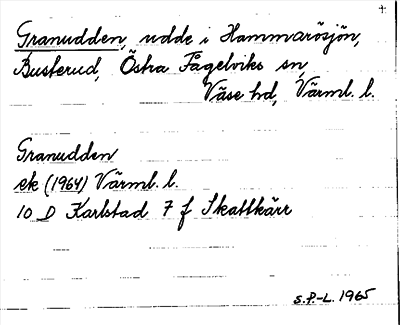 +
Granudden, udde i Hammarösjön,
Busterud, Östra Fågelviks sn,
Väse hd, Värml. l.
Granudden
ek (1964) Värml. l.
10 D Karlstad 7 f Skattkärr
S.P.-L. 1965